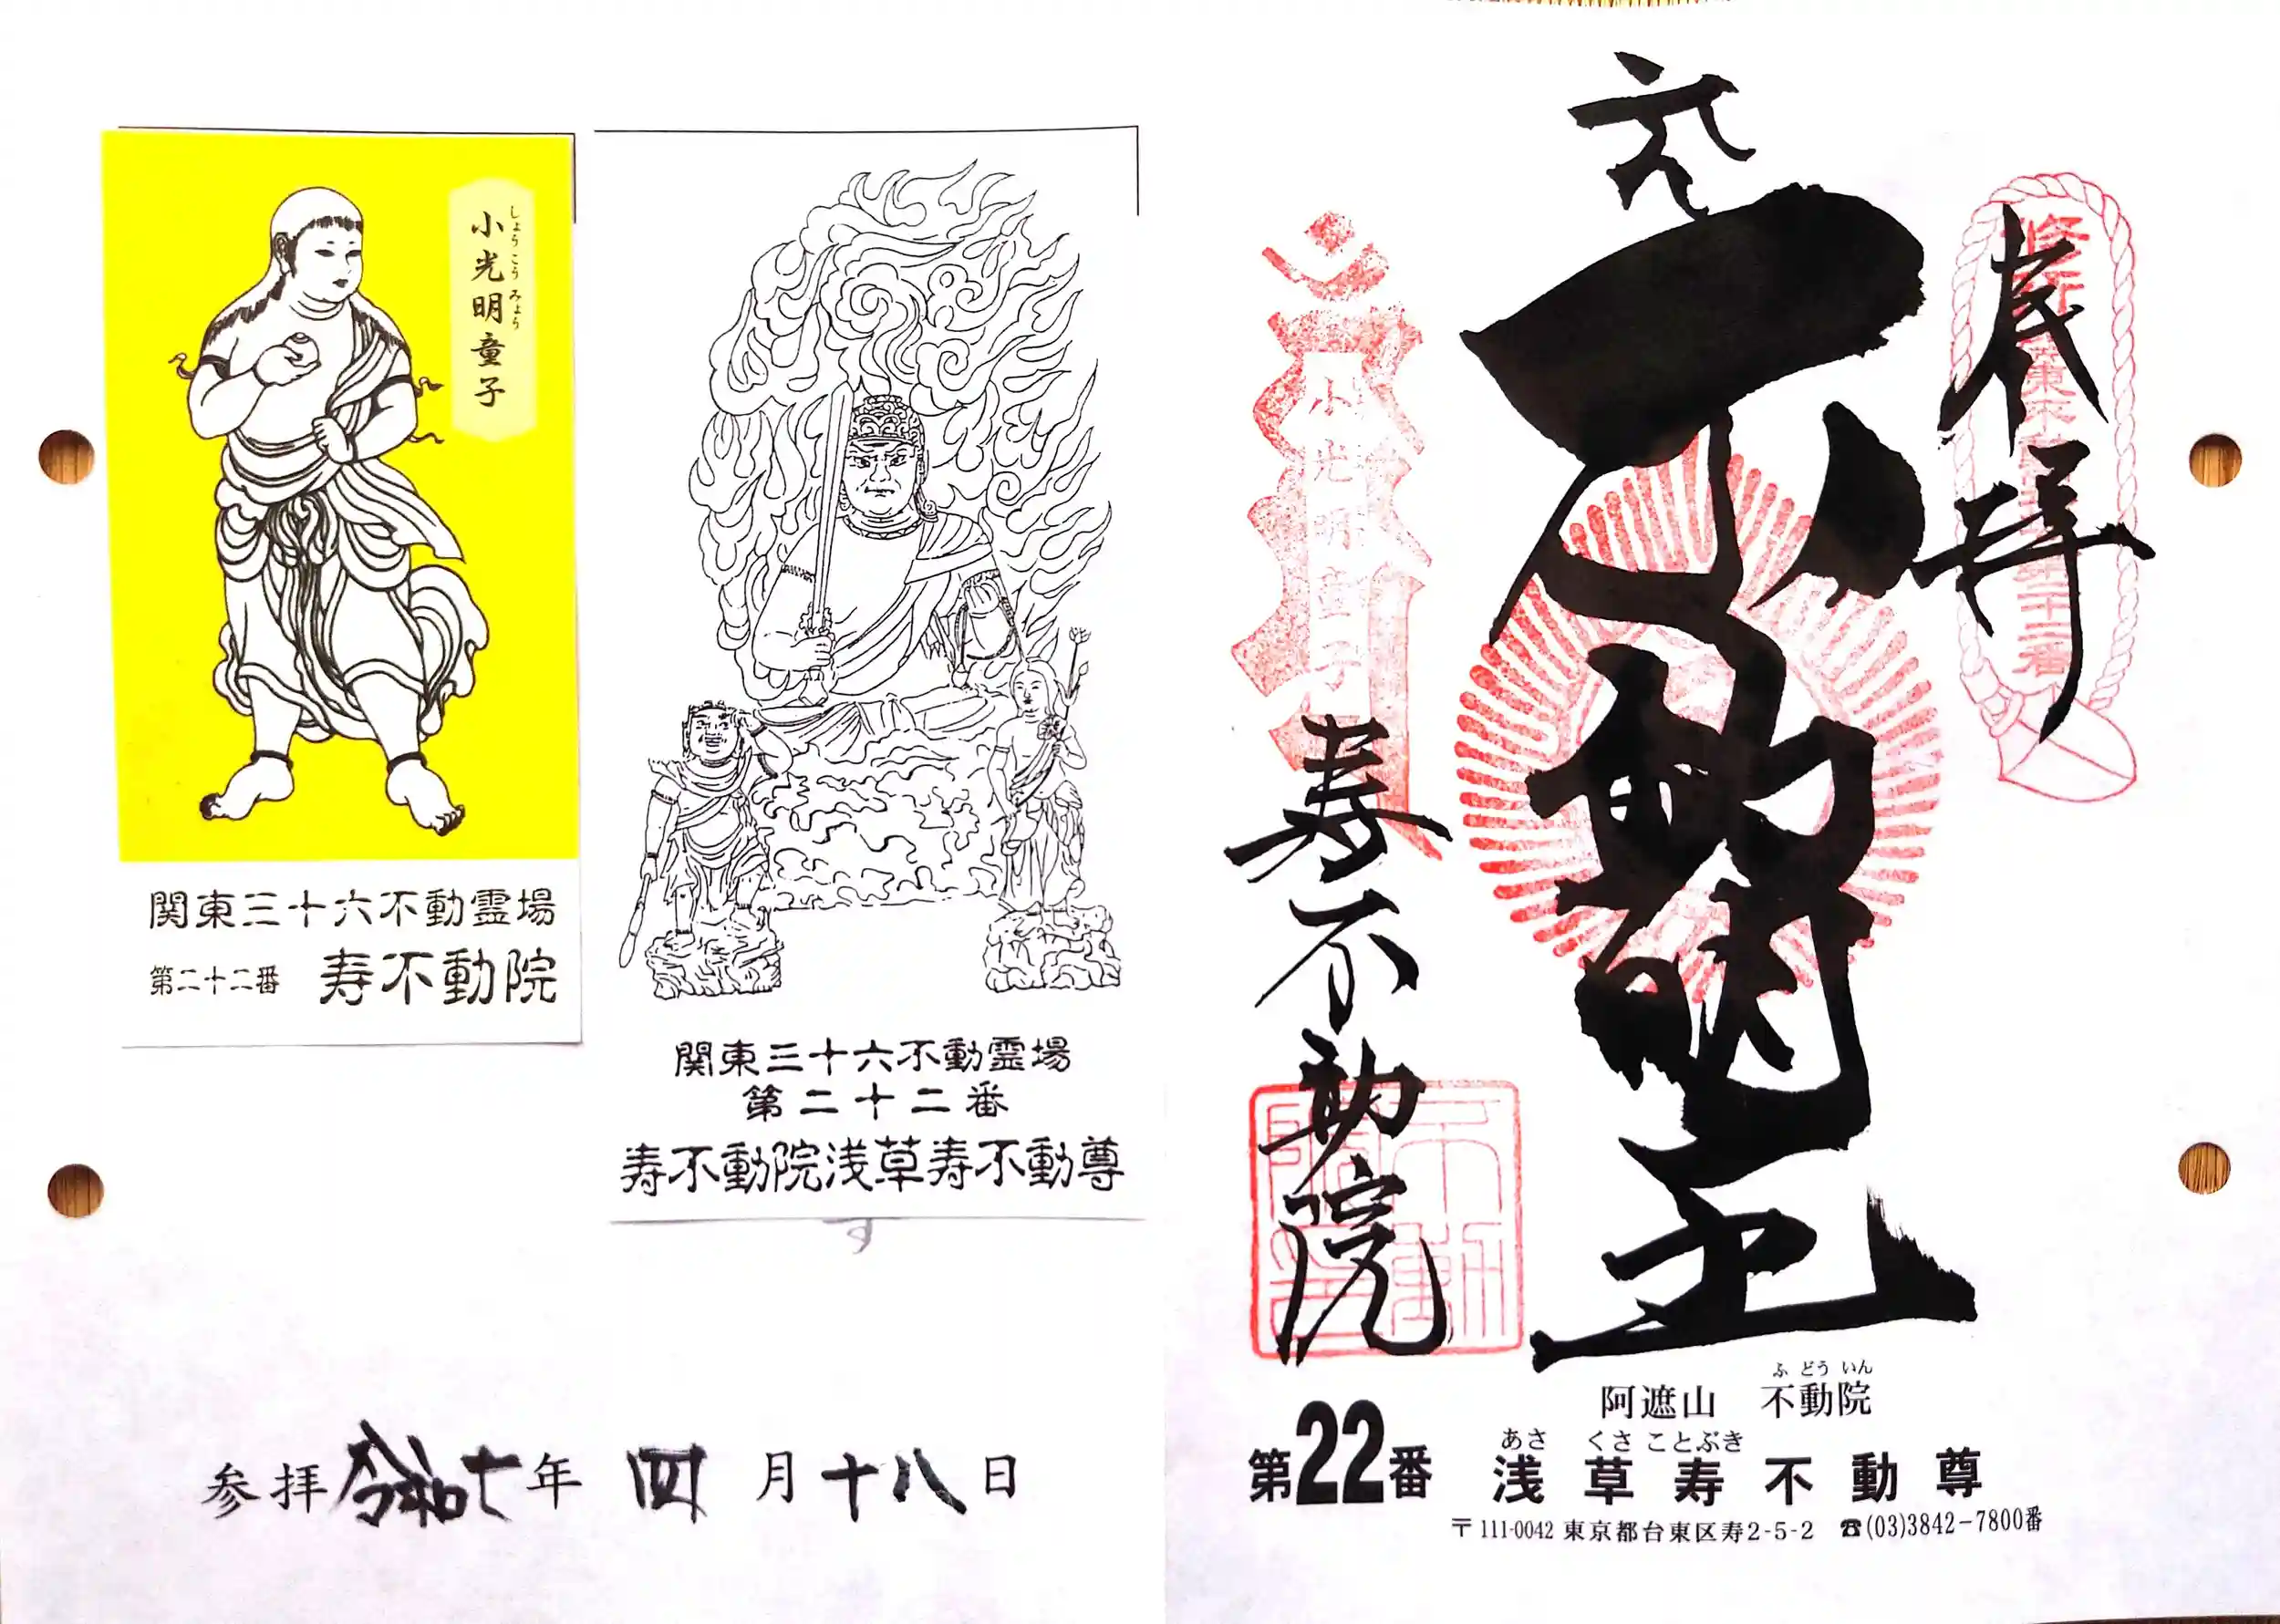 小光明童子
しょうこうみょう
関東三十六不動霊場
第二十二番 寿不動院
関東三十六不動霊場
第二十二番
寿不動院浅草寿不動尊
参拝 令和七年 四月十八日
奉拝
元不動明王
小光明童子
寿不動院
ふどういん
阿遮山 不動院
あさくさことぶき
第22番 浅草寿不動尊
〒111-0042 東京都台東区寿2-5-2 ☎(03)3842-7800番